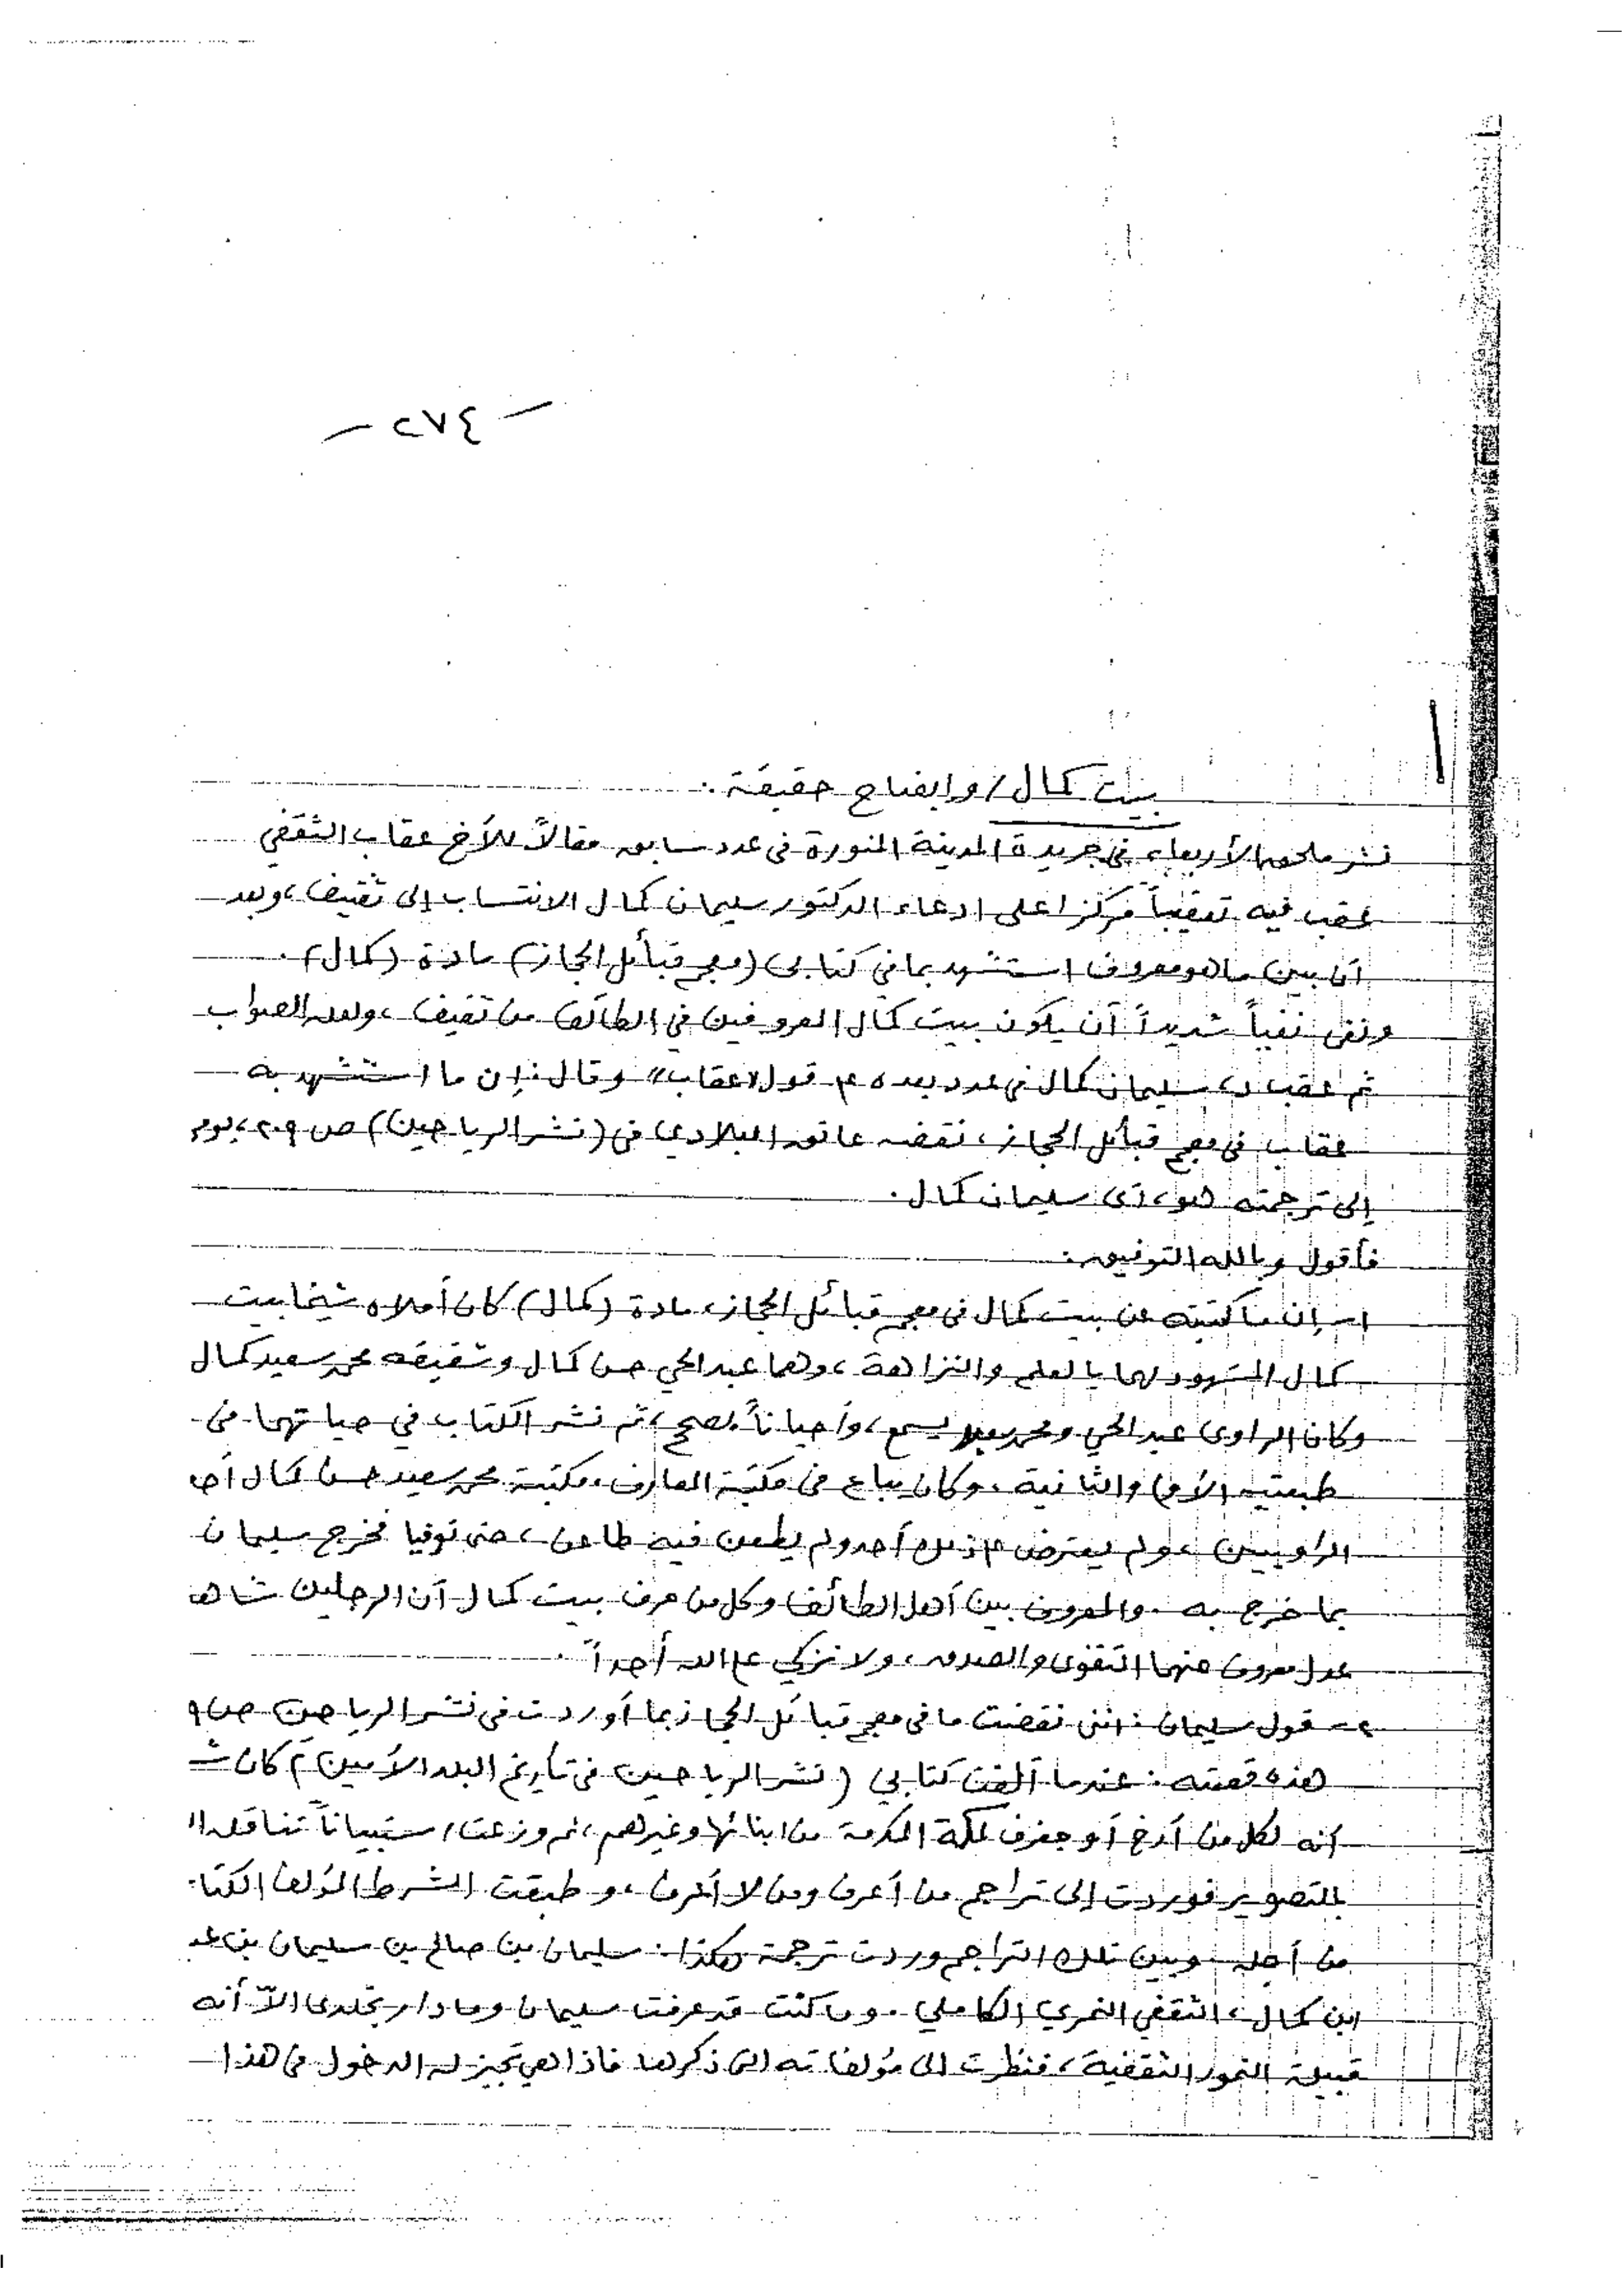 – ٢٧٤ –
بيت كمال / وإيضاح حقيقة :
نشر ملحق الأربعاء في جريدة المدينة المنورة في عدد سابق مقالاً للأخ عقاب الثقفي
عقب فيه تعقيباً مركزا على ادعاء الدكتور سليمان كمال الانتساب إلى ثقيف ، وبعد
أن بين ما هو معروف استشهد بما في كتابي (معجم قبائل الحجاز) مادة (كمال) .
ونفى نفياً شديداً أن يكون بيت كمال المعروفين في الطائف من ثقيف ، ولعله الصواب
ثم عقب د، سليمان كمال في عدد بعده على قول «عقاب» وقال : إن ما استشهد به
عقاب في معجم قبائل الحجاز ، نقضه عاتق البلادي في (نشر الرياحين) ص ٢٠٩ ،
إلى ترجمته هو ، أي سليمان كمال .
فأقول وبالله التوفيق :
١- إن ما كتبته عن بيت كمال في معجم قبائل الحجاز ، مادة (كمال) كان أملاه شيخا بيت
كمال المشهود لهما بالعلم والنزاهة ، وهما عبد الحي حسن كمال وشقيقه محمد سعيد كمال
وكان الراوي عبد الحي ومحمد سعيد يسمع ، وأحياناً يصحح ، ثم نشر الكتاب في حياتهما في
طبعتيه الأولى والثانية ، وكان يباع في مكتبة المعارف ، مكتبة محمد سعيد حسن كمال أحد
الراويين ، ولم يعترض على ذلك أحد ولم يطعن فيه طاعن ، حتى توفيا فخرج سليمان
بما خرج به . والمعروف بين أهل الطائف وكل من عرف بيت كمال أن الرجلين شاهد
عدل معروف عنهما التقوى والصدق ، ولا نزكي على الله أحداً .
٢- قول سليمان : إنني نقضت ما في معجم قبائل الحجاز بما أوردت في نشر الرياحين ص ٩
هذه قصته : عندما ألفت كتابي (نشر الرياحين في تأريخ البلد الأمين) كان شـ
أنه لكل من أرخ أو جغرف لمكة المكرمة من أبنائها وغيرهم ، ثم وزعت استبياناً تناقله ا
بالتصوير فوردت إلي تراجم من أعرف ومن لا أعرف ، وطبقت الشرط المؤلف الكتا
من أجله . وبين تلك التراجم وردت ترجمة هكذا : سليمان بن صالح بن سليمان بن عبد
ابن كمال ، الثقفي النمري الكاملي . وما كنت قد عرفت سليمان وما دار بخلدي الاّ أنه
قبيلة النمور الثقفية ، فنظرت الى مؤلفاته التي ذكرها فاذا هي تجيز له الدخول في هذا